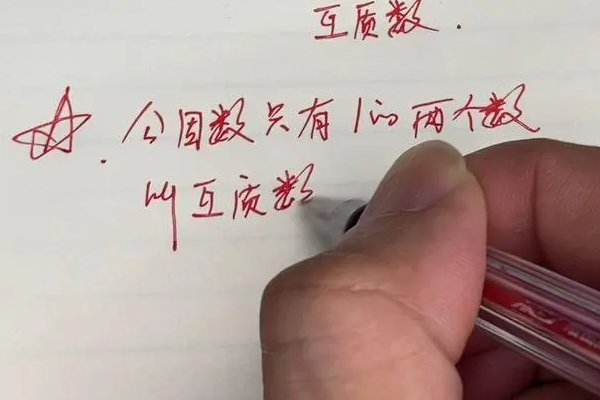 互质数.
☆.公因数只有1的两个数
叫互质数